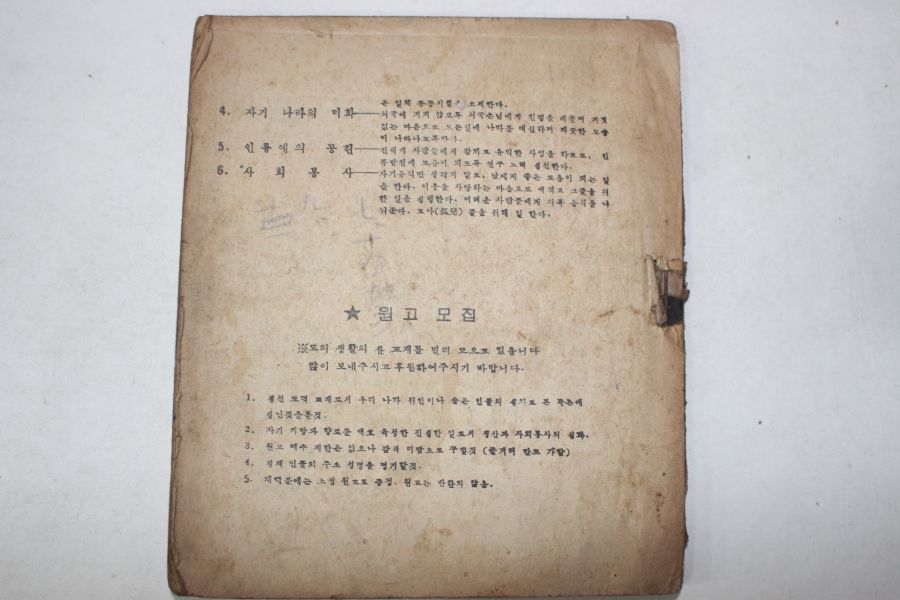 은 일체 공중시설 소제한다.
4. 자기 나라의 미화——외국에 지지 않도록 외국손님에게 친절을 베풀며 거짓
없는 마음으로 모든일에 나라를 대신하며 깨끗한 모습
이 나타나도록
5. 인류에의 공헌——전세계 사람들에게 참되고 유익한 사업을 하고, 인
류발전에 도움이 되도록 연구 노력 실천한다.
6. 사회봉사——자기유익만 생각지 말고, 남에게 좋은 도움이 되는 일
을 한다. 이웃을 사랑하는 마음으로 애끼고 그들을 위
한 일을 실행한다. 어려운 사람들에게 의복 음식를 나
눠준다. 고아(孤兒) 들을 위해 일 한다.
七十
★ 원고 모집
※도의 생활의 른 교재를 널리 모으고 있읍니다
많이 보내주시고 후원하여주시기 바랍니다.
1. 실천 도덕 교재로서 우리 나라 위인이나 좋은 인물의 로 본
2. 자기 지방과 향토를 애호 육성한 진실한 일로서 생산과 사회봉사의 실화.
3. 원고 매수 제한은 없으나 감격 미담으로 구할것 (줄거리 만도 가함)
4. 실재 인물의 주소 성명을 명기할것.
5. 채택분에는 소정 원고료 증정. 원고는 반환치 않음.